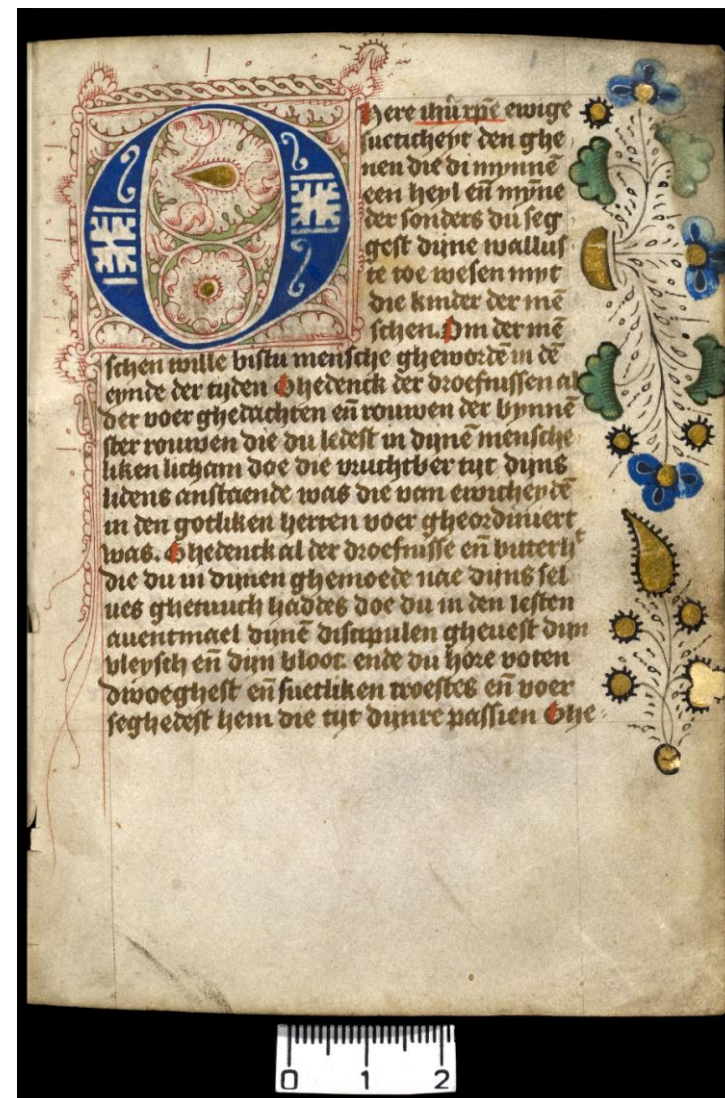 O here ihū xpē ewige
sueticheyt den ghe
nen die di mynnē
een heyl eñ myñe
der sonders du seg
gest dijne wallus
te toe wesen myt
die kinder der mē
schen. Om der mē
schen wille bistu mensche ghewordē in dē
eynde der tyden Ghedenck der droefnissen al
der voer ghedachten eñ rouwen der bynnē
ster rouwen die du ledest in dynē mensche
liken licham doe die vruchtber tyt dyns
lidens anstaende was die van ewicheydē
in den gotliken herten voer gheordiniert
was. Ghedenck al der droefnisse eñ bitterhᵗ
die du in dynen ghemoede nae dyns sel
ues ghetuuch haddes doe du in den lesten
auentmael dynē discipulen gheuest dyn
vleysch eñ dijn bloot. ende du hore voten
dwoeghest eñ suetliken troestes eñ voer
seghedest hem die tyt dynre passien Ghe
0 1 2